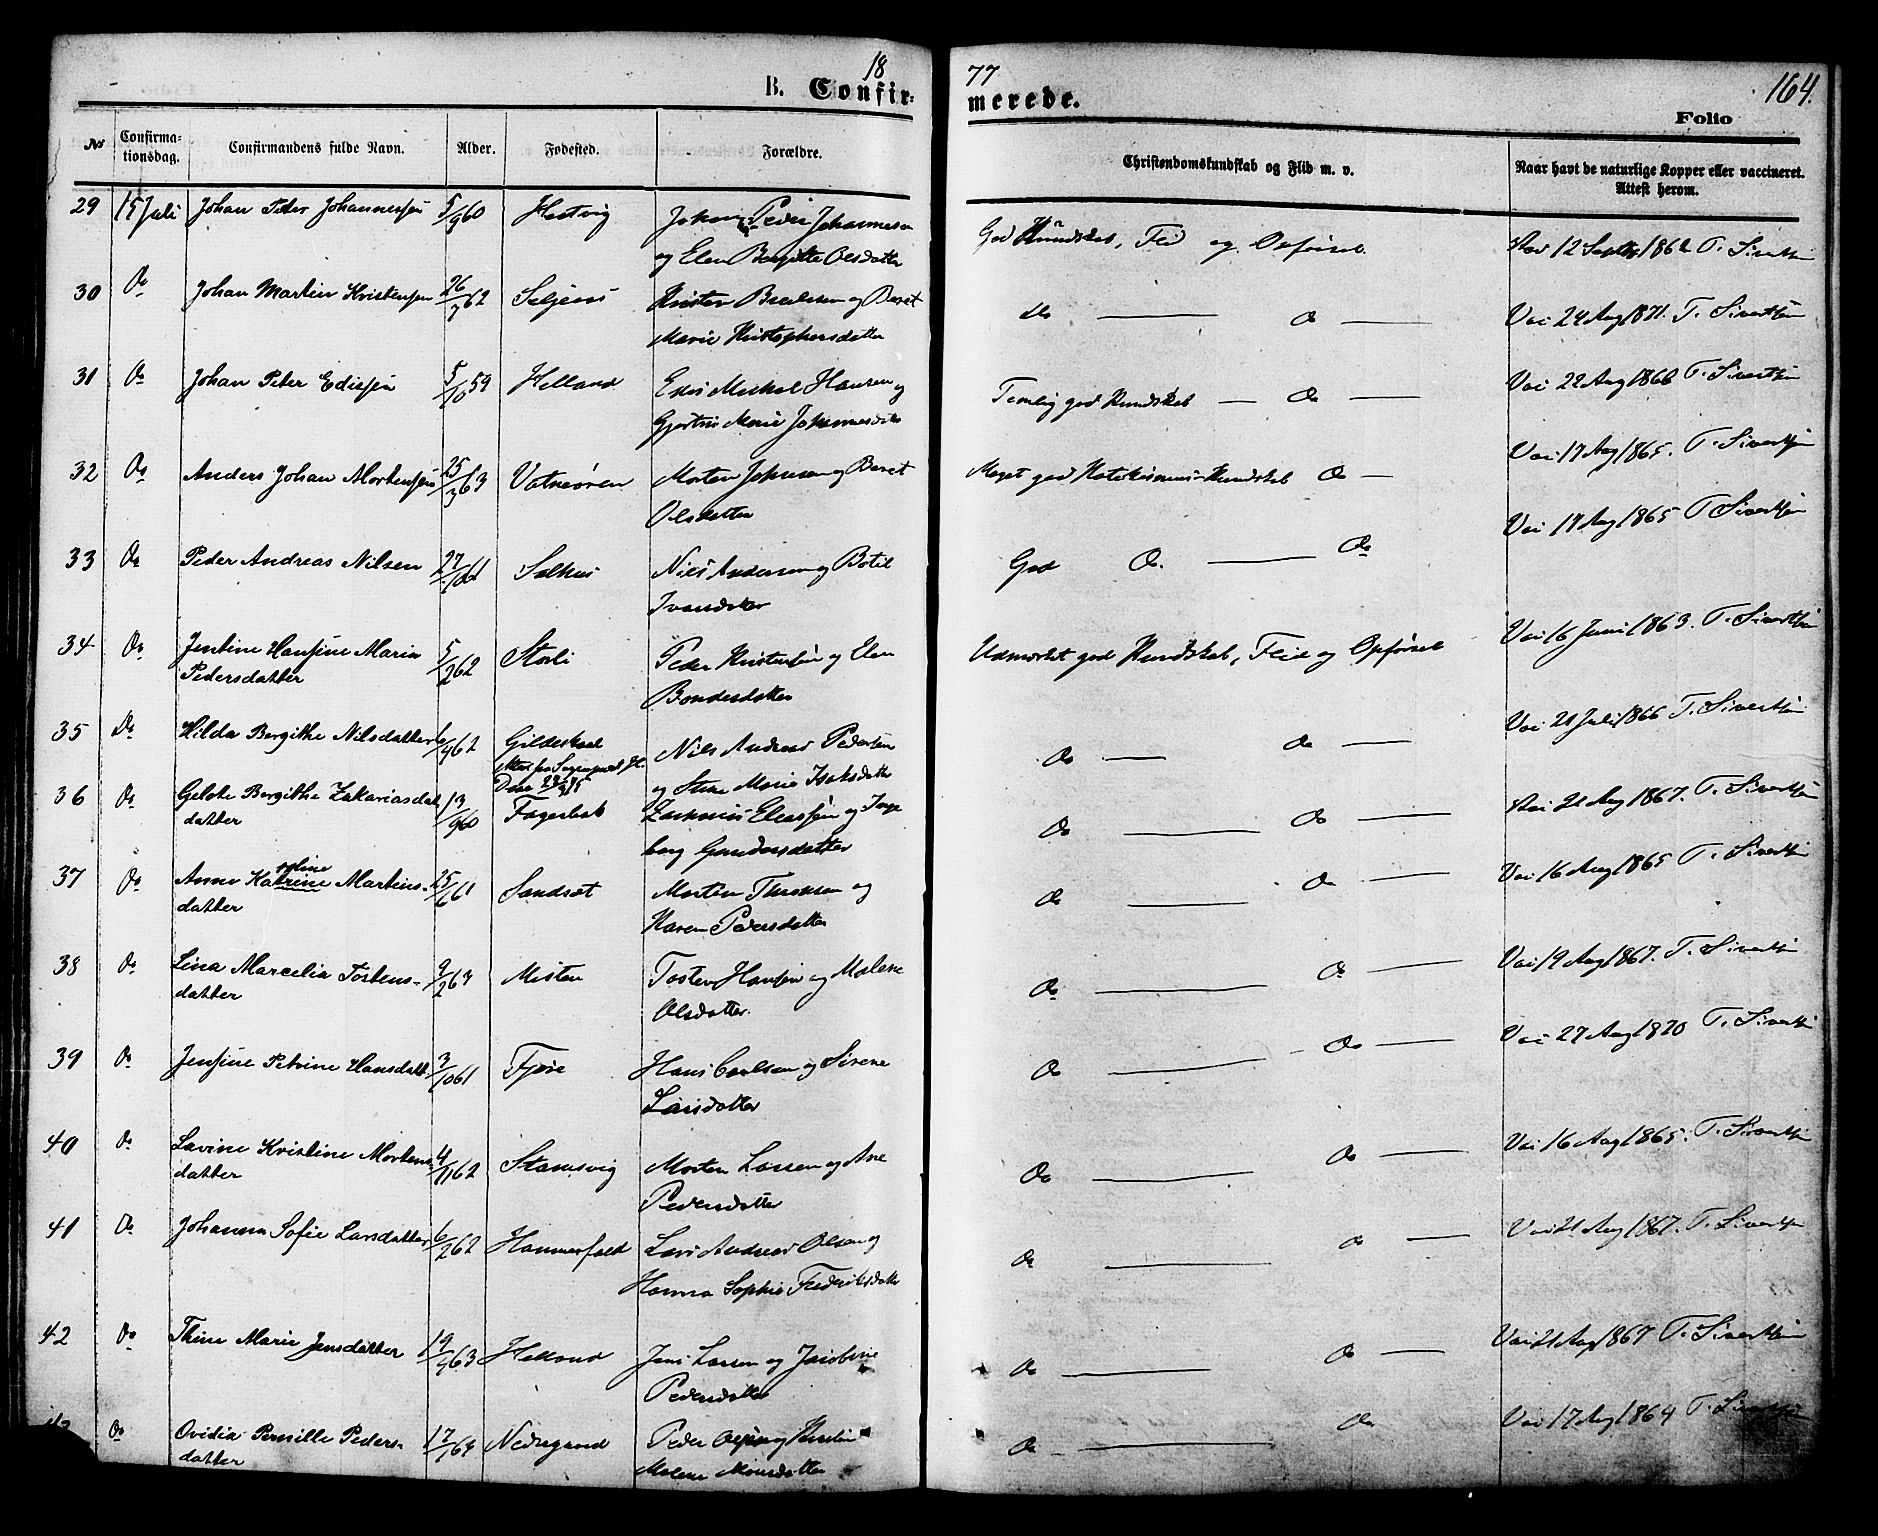 18 77
164.
B. Confirmerede.
Folio
No Confirmationsdag. Confirmandens fulde Navn. Alder. Fødested. Forældre. Christendomskundskab og Flid m. v. Naar havt de naturlige Kopper eller vaccineret. Attest herom.
29 15 Juli Johan Peter Johannessen 5/9 60 Hestvig Johan Peder Johannesen
og Elen Bergitte Olsdatter God Kundskab, Flid og Opførsel. Vac 12 Septbr 1862 T. Sivertsen
30 Do Johan Martin Kristensen 26/3 62 Seljeaas Kristen Berelsen og Beret
Marie Kristophersdatter Do — Do — Vac 24 Aug 1871. T. Sivertsen
31 Do Johan Peter Edissen 5/10 59 Helland Edis Mickal Hansen og
Gjertru Marie Johannesdtr Temlig god Kundskab — Do — Vac 22 Aug 1866 T. Sivertsen
32 Do Anders Johan Mortensen 25/3 63 Vatneøren Morten Johnsen og Beret
Olsdatter Meget god Katekismus-Kundskab Do — Vac 17 Aug 1865. T. Sivertsen
33 Do Peder Andreas Nilsen 27/10 61 Solhus Nils Andersen og Botil
Ivarsdatter God Do. — Do Vac 17 Aug 1865 T Sivertsen
34 Do Jentine Hansine Maria
Pedersdatter 5/2 62 Storli Peder Kristensen og Elen
Bondesdatter Udmerket god Kundskab, Flid og Opførsel Vac 16 Juni 1863. T. Sivertsen
35 Do Hilda Bergithe Nilsdatter 6/4 62 Gildeskaal
Nils Andreas Pedersen
og Stine Marie Isaksdatter Do — Do — Vac 21 Juli 1866 T. Sivertsen
36 Do Geloke Bergithe Zakariasdat
datter 13/9 60 Fagerbak Zakarias Eliassen og Inge
borg Gundersdatter Do — Do — Vac 21 Aug 1867. T. Sivertsen
37 Do Anne Katrine Martins-
datter 25/6 61 Sandsæt Morten Thomsen og
Karen Pedersdatter Do — Do — Vac 16 Aug 1865 T. Sivertsen
38 Do Lina Marcelia Tostens-
datter 9/2 63 Misten Tosten Hansen og Malene
Olsdatter. Do — Do — Vac 19 Aug 1867. T. Sivertsen
39 Do Jensine Petrine Hansdatt. 3/10 61 Fjære Hans Carlsen og Sirene
Larsdatter Do — Do — Vac 27 Aug 1870 T. Sivertsen
40 Do Lavine Kristine Mortens
datter 4/11 62 Stamsvig Morten Larsen og Ane
Pedersdatter Do — Do — Vac 16 Aug 1865. T. Sivertsen
41 Do Johanna Sofie Larsdatter 6/2 62 Hammerfald Lars Andreas Olsen og
Hanna Sophie Frederiksdatter Do — Do — Vac 21 Aug 1867. T. Sivertsen
42 Do Thine Marie Jensdatter 19/4 63 Helland Jens Larsen og Jacobine
Pedersdatter Do — Do — Vac 21 Aug 1867 T. Sivertsen
Do Ovidia Pernille Peders-
datter 17/4 64 Nedregaard Peder Olsen og Kirstin
Malene Monsdatter Do — Do Vac 17 Aug 1864 T. Sivertsen